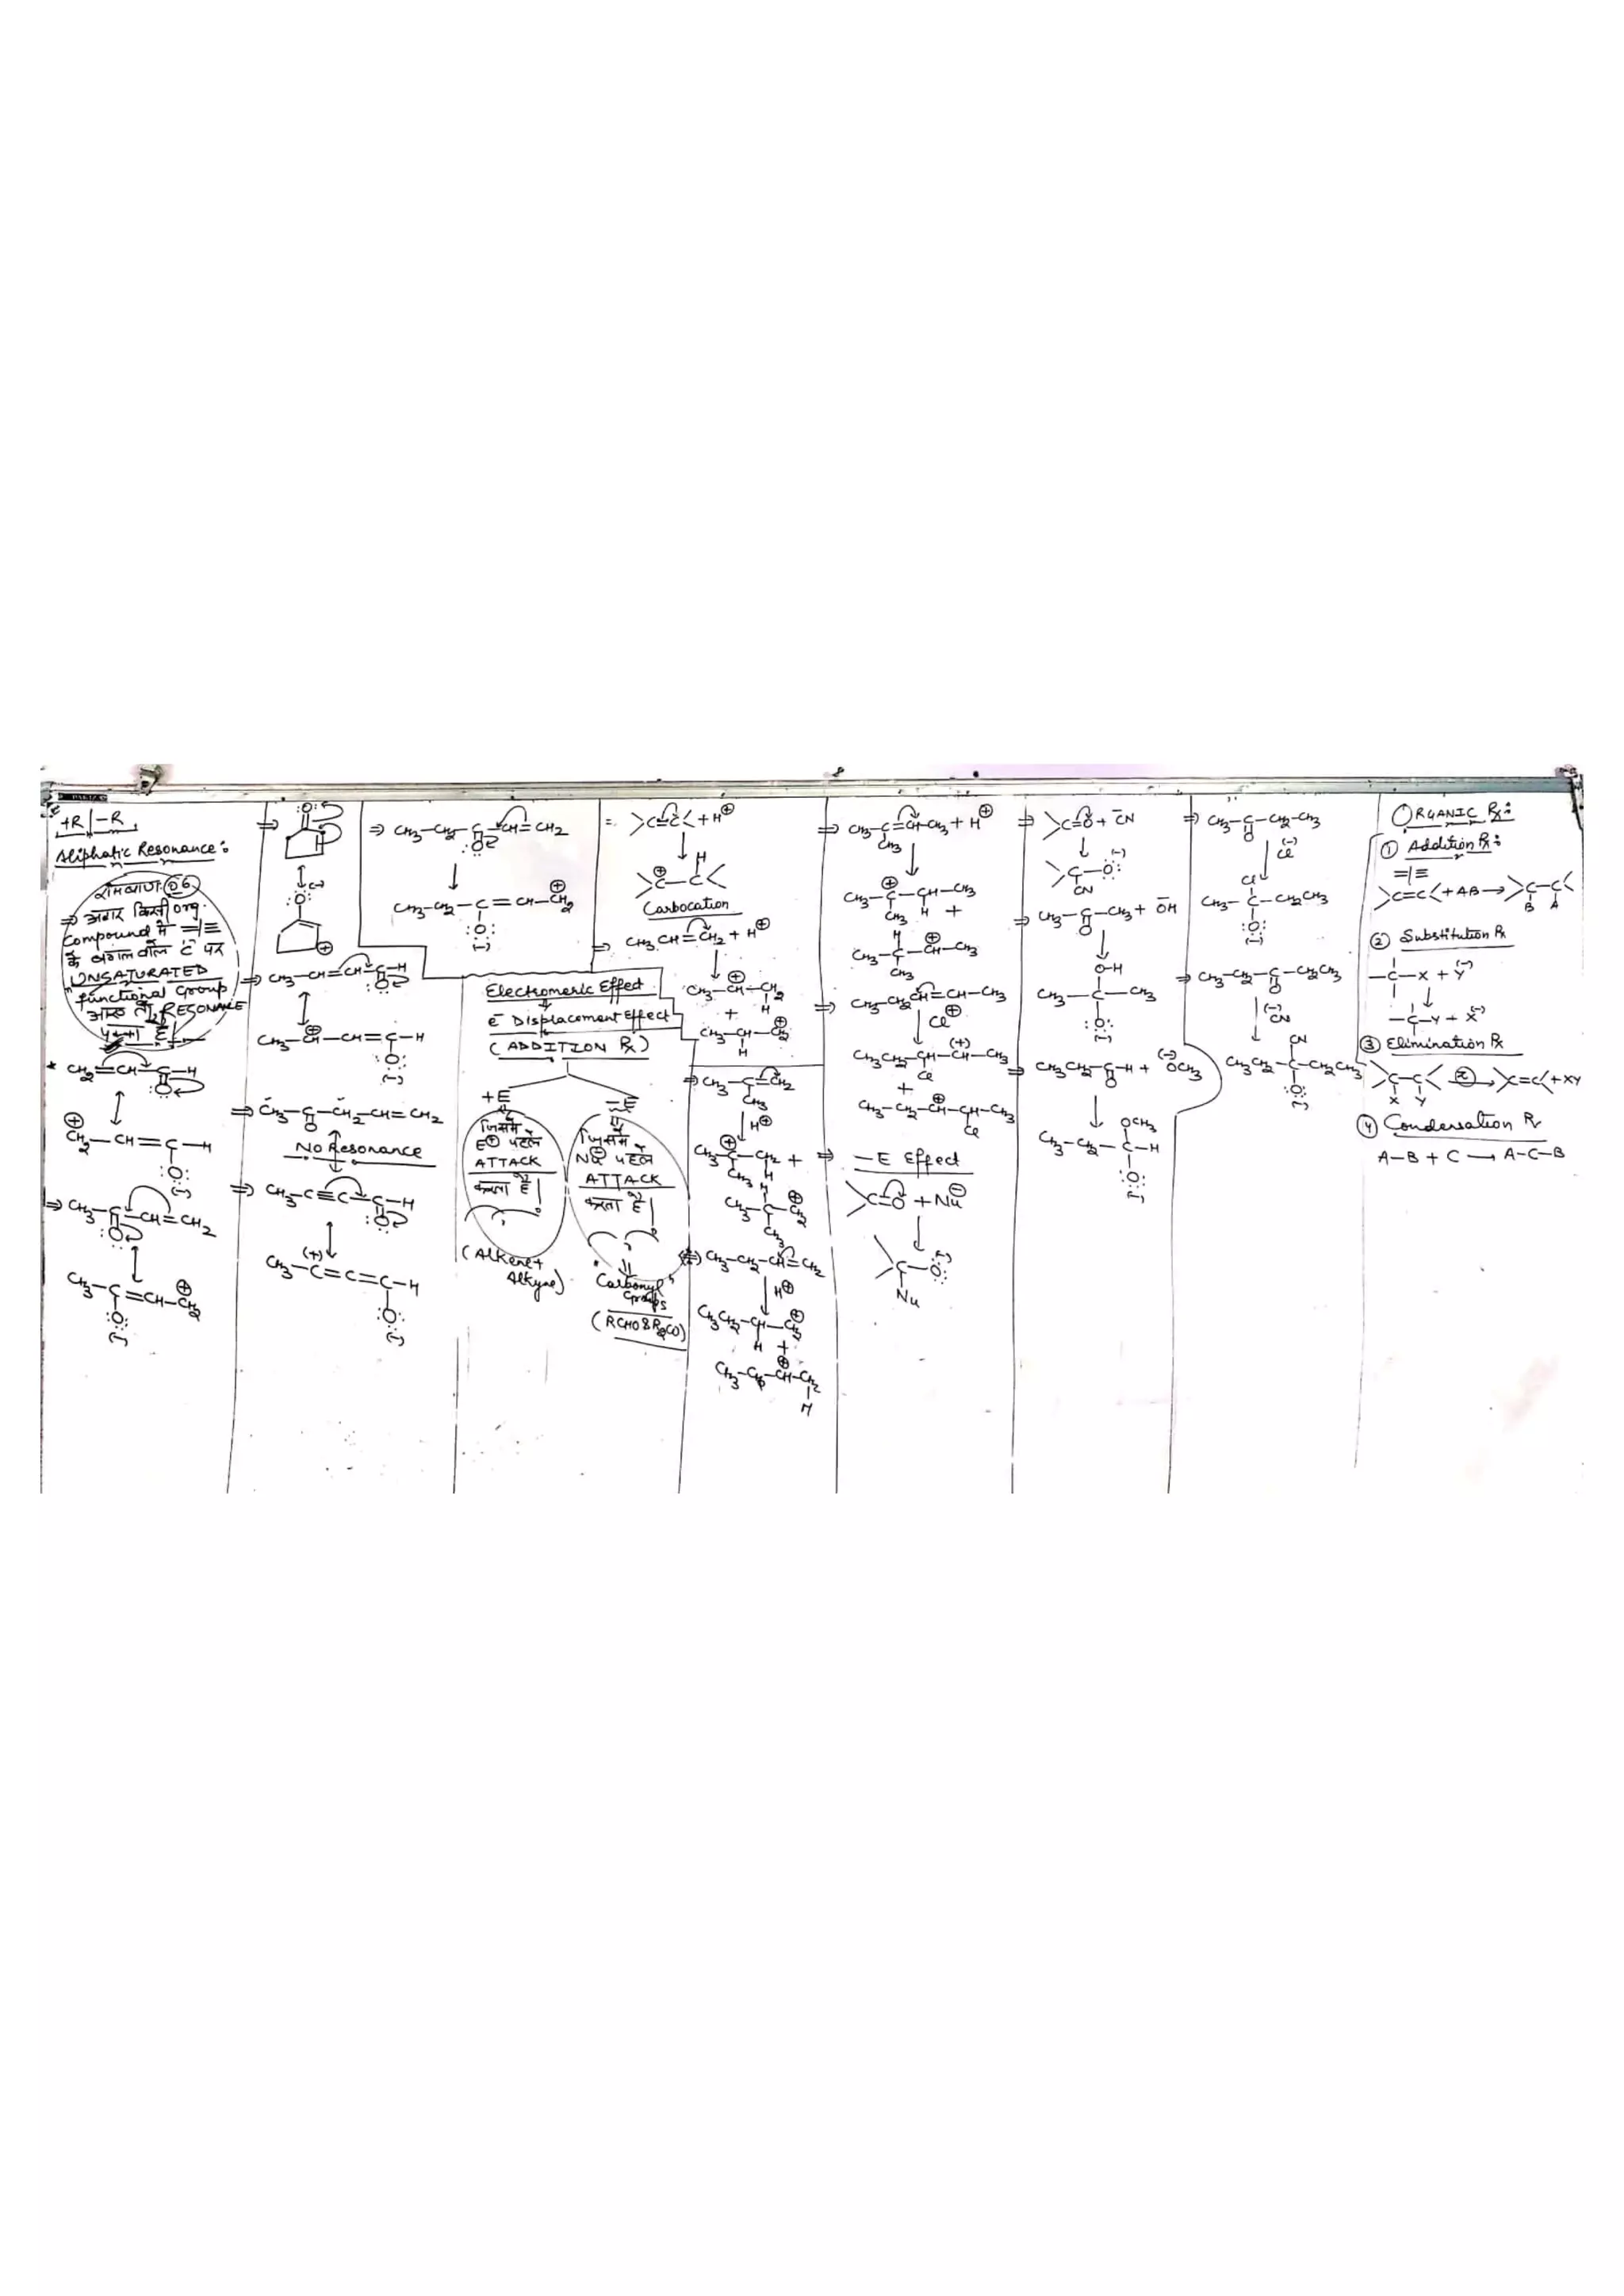 +R | -R
Aliphatic Resonance:
रामबाण 06
⇒ अगर किसी org.
compound में =|≡
के बगल वाले C पर
UNSATURATED
functional Group
आए तो RESONANCE
* CH2=CH-C-H
O
⊕
CH2-CH=C-H
:O:
(-)
⇒ CH3-C-CH=CH2
:O
CH3-C=CH-CH2 ⊕
:O:
(-)
⇒ :O:
:O: (-)
⊕
⇒ CH3-CH=CH-C-H
:O
CH3-CH-CH=C-H
⊕
:O:
(-)
⇒ CH3-C-CH2-CH=CH2
O
No Resonance
⇒ CH3-C≡C-C-H
:O
(+)
CH3-C=C=C-H
:O:
(-)
⇒ CH3-CH2-C-CH=CH2
:O
CH3-CH2-C=CH-CH2 ⊕
:O:
(-)
Electromeric Effect
e- Displacement Effect
(ADDITION Rx)
+E
जिसमें
E⊕ पहले
ATTACK
करता है|
(Alkene+
Alkyne)
-E
जिसमें
Nu⊖ पहले
ATTACK
करता है|
"Carbonyl"
Groups
(RCHO & R2CO)
= >C=C< + H⊕
H
>C-C<
⊕
Carbocation
⇒ CH3CH=CH2 + H⊕
⊕
CH3-CH-CH2
H
+
CH3-CH-CH2 ⊕
H
⇒ CH3-C=CH2
CH3
H⊕
CH3-C-CH2 +
⊕
CH3 H
H
CH3-C-CH2 ⊕
CH3
⇒ CH3-CH2-CH=CH2
H⊕
CH3CH2-CH-CH2 ⊕
H +
⊕
CH3-CH2-CH-CH2
H
⇒ CH3-C=CH-CH3 + H⊕
CH3
⊕
CH3-C-CH-CH3
CH3 H +
H ⊕
CH3-C-CH-CH3
CH3
⇒ CH3-CH2CH=CH-CH3
Cl⊕
(+)
CH3CH2-CH-CH-CH3
Cl
+
CH3-CH2-CH-CH-CH3
⊕
Cl
⇒ -E Effect
>C=O + Nu⊖
>C-O: (-)
Nu
⇒ >C=O + CN-
>C-O: (-)
CN
⇒ CH3-C-CH3 + OH-
O
O-H
CH3-C-CH3
:O:
(-)
⇒ CH3CH2-C-H + OCH3 (-)
O
OCH3
CH3-CH2-C-H
:O:
(-)
⇒ CH3-C-CH2-CH3
O
(-)
Cl
Cl
CH3-C-CH2CH3
:O:
(-)
⇒ CH3-CH2-C-CH2CH3
O
(-)
CN
CN
CH3CH2-C-CH2CH3
:O:
(-)
ORGANIC Rx:
① Addition Rx:
=|≡
>C=C< + AB → >C-C<
B A
② Substitution Rx
-C-X + Y (-)
-C-Y + X (-)
③ Elimination Rx
>C-C< → >C=C< + XY
X Y
④ Condensation Rx
A-B + C → A-C-B